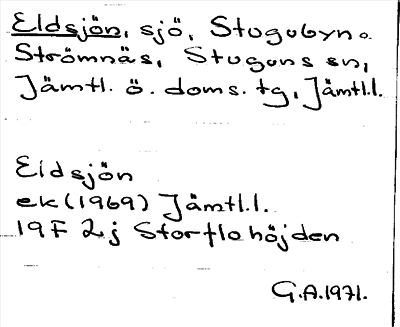 Eldsjön, sjö, Stugubyn o.
Strömnäs, Stuguns sn,
Jämtl. ö. doms. tg, Jämtl.l.
Eldsjön
ek (1969) Jämtl.l.
19F 2j Storflohöjden
G.A.1971.